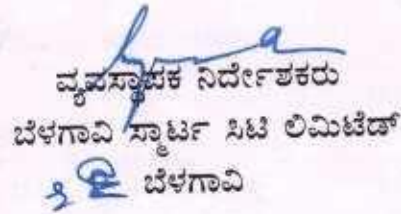 ವ್ಯವಸ್ಥಾಪಕ ನಿರ್ದೇಶಕರು
ಬೆಳಗಾವಿ ಸ್ಮಾರ್ಟ ಸಿಟಿ ಲಿಮಿಟೆಡ್
ಬೆಳಗಾವಿ